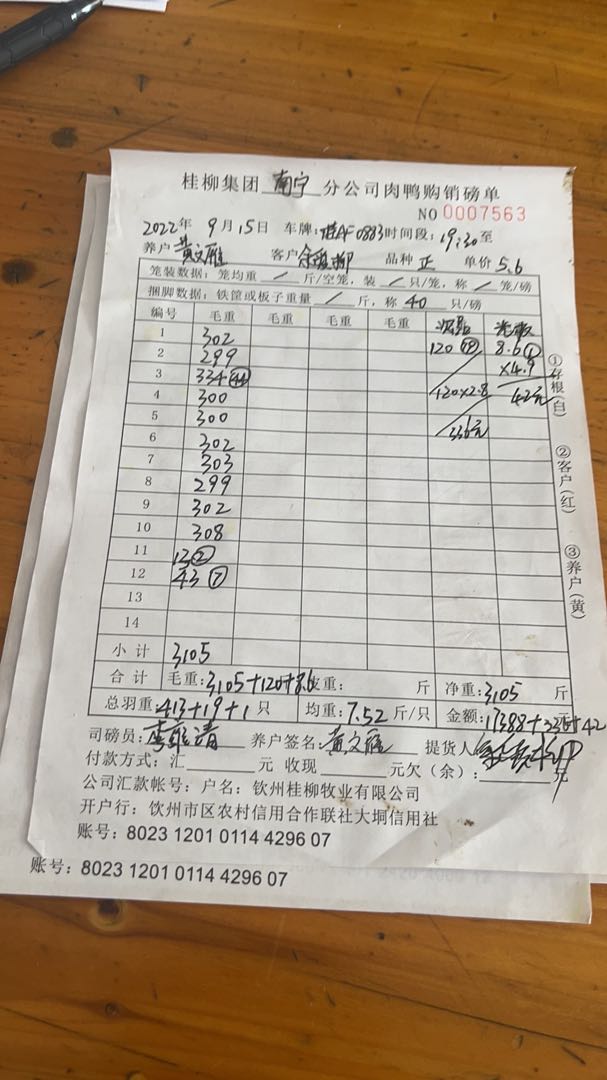 桂柳集团 南宁 分公司肉鸭购销磅单
NO 0007563
2022年 9月15日 车牌:桂AF0883 时间段:19:30至
养户 黄文雁 客户 品种 正 单价 5.6
笼装数据:笼均重 / 斤/空笼,装 / 只/笼,称 / 笼/磅
捆脚数据:铁筐或板子重量 / 斤,称 40 只/磅
编号 毛重 毛重 毛重 毛重
1 302
2 299 120 ⑲ 8.6 ①
3 334 ㊹ ×4.9
4 300 120×2.8 42元
5 300 336元
6 302
7 303
8 299
9 302
10 308
11 13 ②
12 43 ⑦
13
14
小计 3105
合计 毛重:3105+120+8.6 皮重: 斤 净重:3105 斤
总羽重:413+19+1 只 均重:7.52 斤/只 金额:17388+336+42
司磅员: 养户签名:黄文雁 提货人
付款方式:汇 元 收现 元欠(余): 元
公司汇款帐号:户名:钦州桂柳牧业有限公司
开户行:钦州市区农村信用合作联社大垌信用社
账号:8023 1201 0114 4296 07
账号:8023 1201 0114 4296 07
①存根(白)
②客户(红)
③养户(黄)